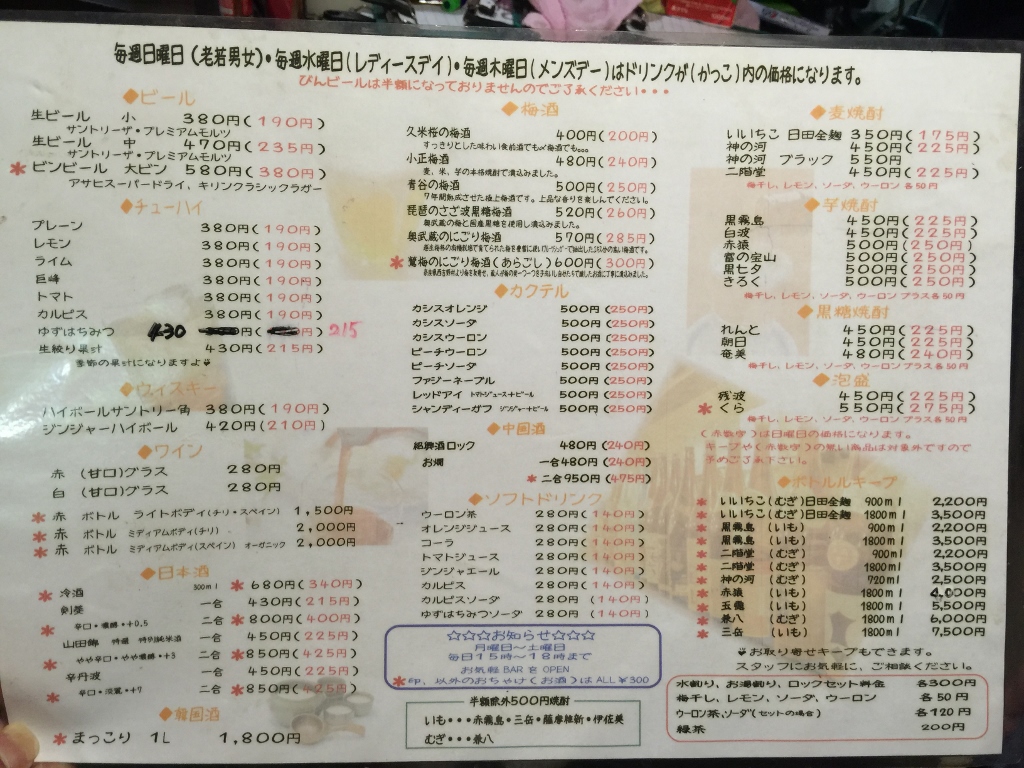 毎週日曜日(老若男女)・毎週水曜日(レディースデイ)・毎週木曜日(メンズデー)はドリンクが(かっこ)内の価格になります。
びんビールは半額になっておりませんのでご了承ください・・・
◆ビール
生ビール 小 380円(190円)
サントリーザ・プレミアムモルツ
生ビール 中 470円(235円)
サントリーザ・プレミアムモルツ
*ビンビール 大ビン 580円(380円)
アサヒスーパードライ、キリンクラシックラガー
◆チューハイ
プレーン 380円(190円)
レモン 380円(190円)
ライム 380円(190円)
巨峰 380円(190円)
トマト 380円(190円)
カルピス 380円(190円)
ゆずはちみつ 430 円(円) 215
生絞り果汁 430円(215円)
季節の果汁になりますよ
◆ウィスキー
ハイボールサントリー角 380円(190円)
ジンジャーハイボール 420円(210円)
◆ワイン
赤 (甘口)グラス 280円
白 (甘口)グラス 280円
*赤 ボトル ライトボディ(チリ・スペイン) 1,500円
*赤 ボトル ミディアムボディ(チリ) 2,000円
*赤 ボトル ミディアムボディ(スペイン) オーガニック 2,000円
◆日本酒
*冷酒 300ml *680円(340円)
剣菱 一合 430円(215円)
*辛口・濃醇・+0.5 二合 *800円(400円)
山田錦 特選 特別純米酒 一合 450円(225円)
*やや辛口・やや濃醇・+3 二合 *850円(425円)
辛丹波 一合 450円(225円)
*辛口・淡麗・+7 二合 *850円(425円)
◆韓国酒
*まっこり 1L 1,800円
◆梅酒
久米桜の梅酒 400円(200円)
すっきりとした味わい食前酒でも〆梅酒でも。。。
小正梅酒 480円(240円)
麦、米、芋の本格焼酎で漬込みました。
青谷の梅酒 500円(250円)
7年間熟成させた極上梅酒です。上品な香りを楽しんでください。
琵琶のさざ波黒糖梅酒 520円(260円)
奥武蔵の梅と国産黒糖を使用し漬込みました。
奥武蔵のにごり梅酒 570円(285円)
*鶯梅のにごり梅酒(あらごし) 600円(300円)
◆カクテル
カシスオレンジ 500円(250円)
カシスソーダ 500円(250円)
カシスウーロン 500円(250円)
ピーチウーロン 500円(250円)
ピーチソーダ 500円(250円)
ファジーネーブル 500円(250円)
レッドアイ トマトジュース+ビール 500円(250円)
シャンディーガフ ジンジャー+ビール 500円(250円)
◆中国酒
紹興酒ロック 480円(240円)
お燗 一合480円(240円)
*二合950円(475円)
◆ソフトドリンク
ウーロン茶 280円(140円)
オレンジジュース 280円(140円)
コーラ 280円(140円)
トマトジュース 280円(140円)
ジンジャエール 280円(140円)
カルピス 280円(140円)
カルピスソーダ 280円(140円)
ゆずはちみつソーダ 280円(140円)
☆☆☆お知らせ☆☆☆
月曜日~土曜日
毎日15時~18時まで
お気軽BARをOPEN
*印、以外のおちゃけ(お酒)はALL¥300
半額除外500円焼酎
いも・・・赤霧島・三岳・薩摩維新・伊佐美
むぎ・・・兼八
◆麦焼酎
いいちこ 日田全麹 350円(175円)
神の河 450円(225円)
神の河 ブラック 550円
二階堂 450円(225円)
梅干し、レモン、ソーダ、ウーロン 各50円
◆芋焼酎
黒霧島 450円(225円)
白波 450円(225円)
赤猿 500円(250円)
富の宝山 500円(250円)
黒七夕 500円(250円)
きろく 500円(250円)
梅干し、レモン、ソーダ、ウーロンプラス各50円
◆黒糖焼酎
れんと 450円(225円)
朝日 450円(225円)
奄美 480円(240円)
梅干し、レモン、ソーダ、ウーロンプラス各50円
◆泡盛
残波 450円(225円)
*くら 550円(275円)
梅干し、レモン、ソーダ、ウーロンプラス各50円
(赤数字)は日曜日の価格になります。
キープや(赤数字)の無い商品は対象外ですので
予めご了承下さい。
◆ボトルルキープ
*いいちこ(むぎ)日田全麹 900ml 2,200円
*いいちこ(むぎ)日田全麹 1800ml 3,500円
*黒霧島 (いも) 900ml 2,200円
*黒霧島 (いも) 1800ml 3,500円
*二階堂 (むぎ) 900ml 2,200円
*二階堂 (むぎ) 1800ml 3,500円
*神の河 (むぎ) 720ml 2,500円
*赤猿 (いも) 1800ml 4,000円
*五竈 (いも) 1800ml 5,500円
*兼八 (むぎ) 1800ml 6,000円
*三岳 (いも) 1800ml 7,500円
お取り寄せキープもできます。
スタッフにお気軽に、ご相談ください。
水割り、お湯割り、ロックセット料金 各300円
梅干し、レモン、ソーダ、ウーロン 各50円
ウーロン茶、ソーダ(セットの場合) 各120円
緑茶 200円